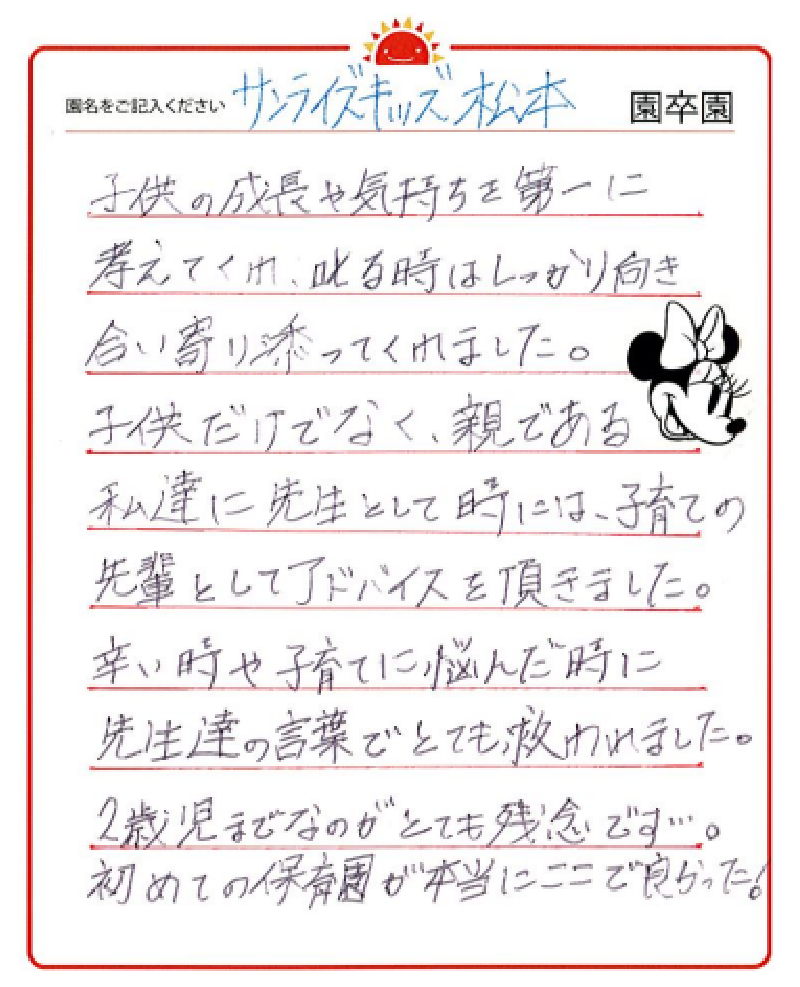 園名をご記入ください サンライズキッズ松本 園卒園
子供の成長や気持ちを第一に
考えてくれ、叱る時はしっかり向き
合い寄り添ってくれました。
子供だけでなく、親である
私達に先生として時には、子育ての
先輩としてアドバイスを頂きました。
辛い時や子育てに悩んだ時に
先生達の言葉でとても救われました。
2歳児までなのがとても残念です…。
初めての保育園が本当にここで良かった!